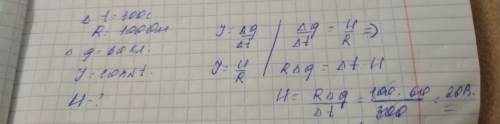 Δ t = 300с
R = 100Ом
Δ g = 60 кл.
J = const.
U = ?
J = Δg/Δt
J = U/R
Δg/Δt = U/R =>
RΔg = Δt U
U = RΔg/Δt = 100 · 60/300 = 20В.